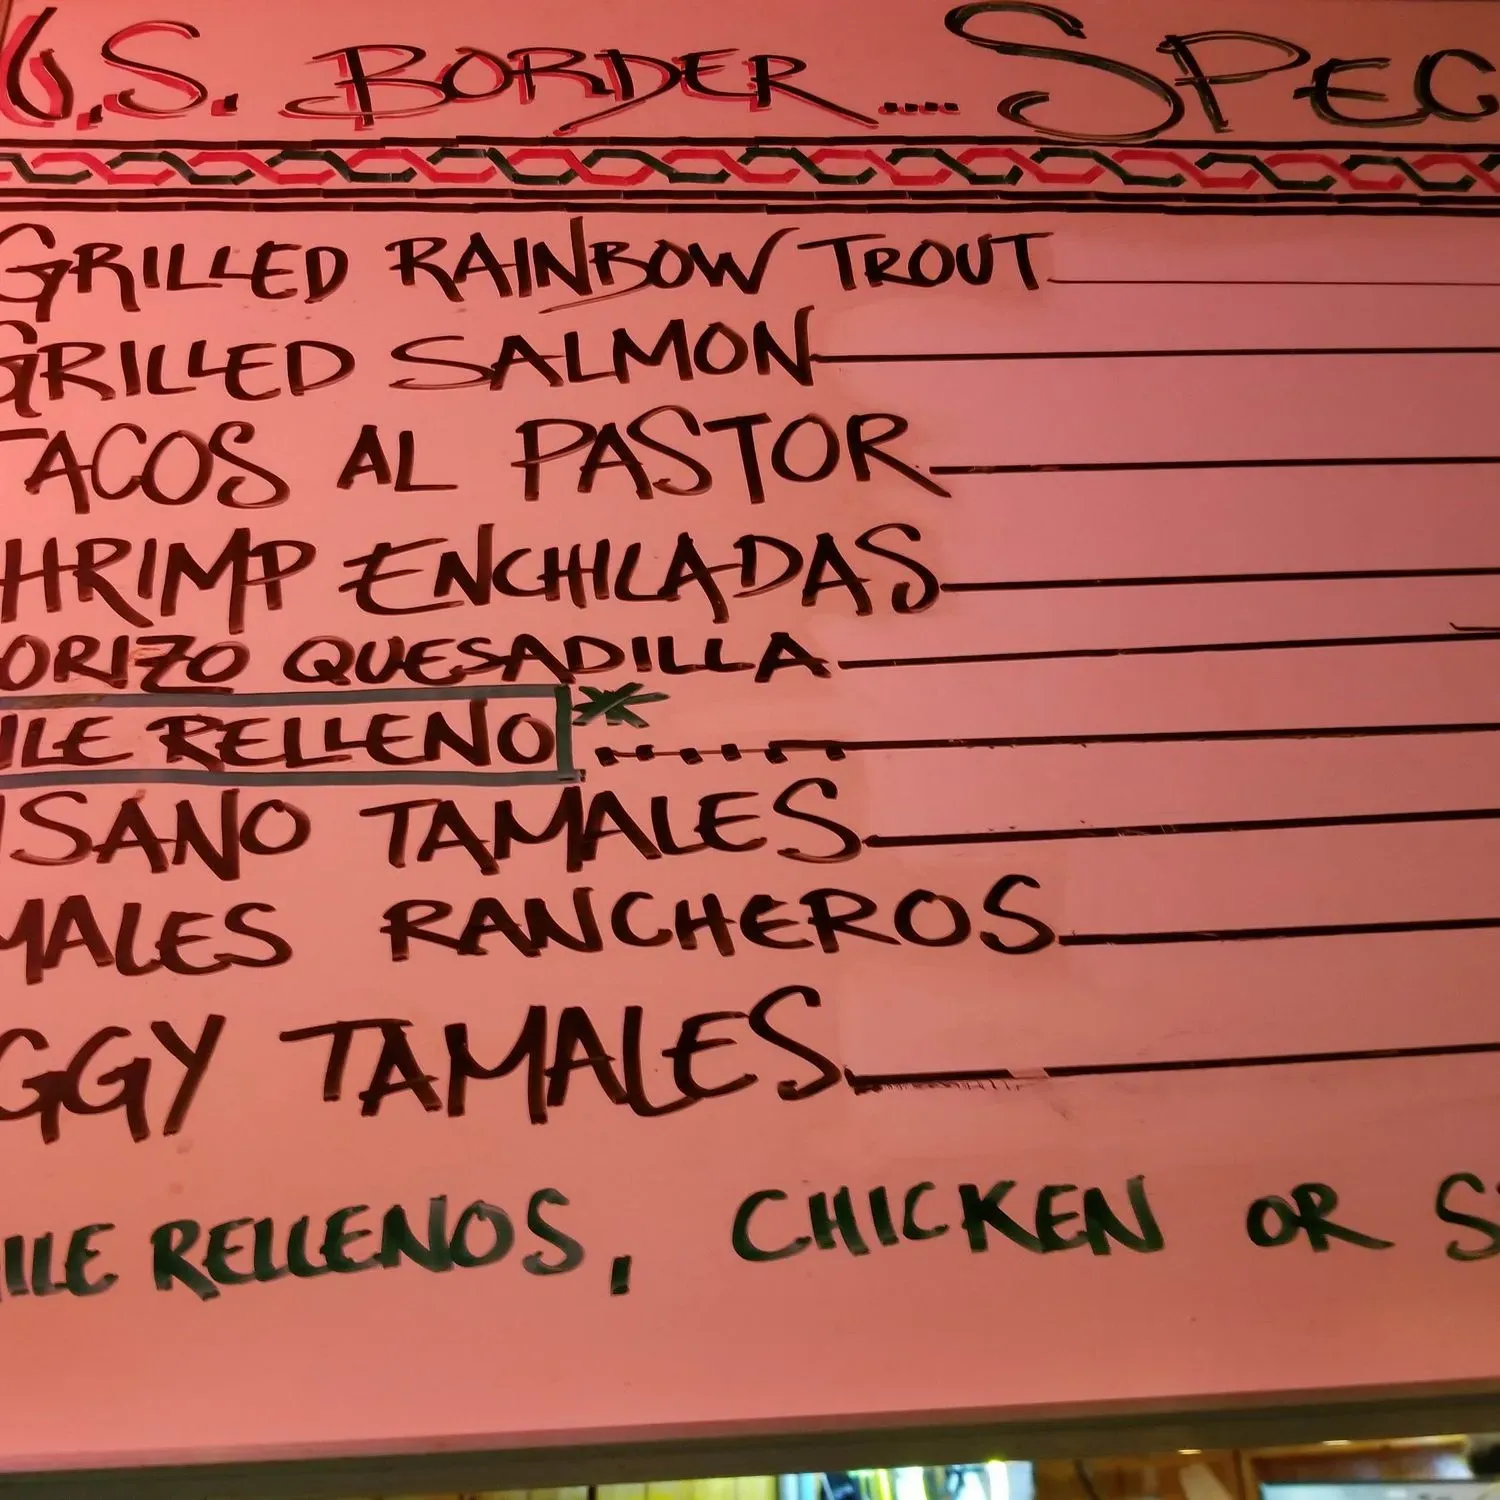 U.S. BORDER.... SPEC
GRILLED RAINBOW TROUT
GRILLED SALMON
TACOS AL PASTOR
HRIMP ENCHILADAS
ORIZO QUESADILLA
ILE RELLENO*.......
ISANO TAMALES
MALES RANCHEROS
GGY TAMALES
ILE RELLENOS, CHICKEN OR S